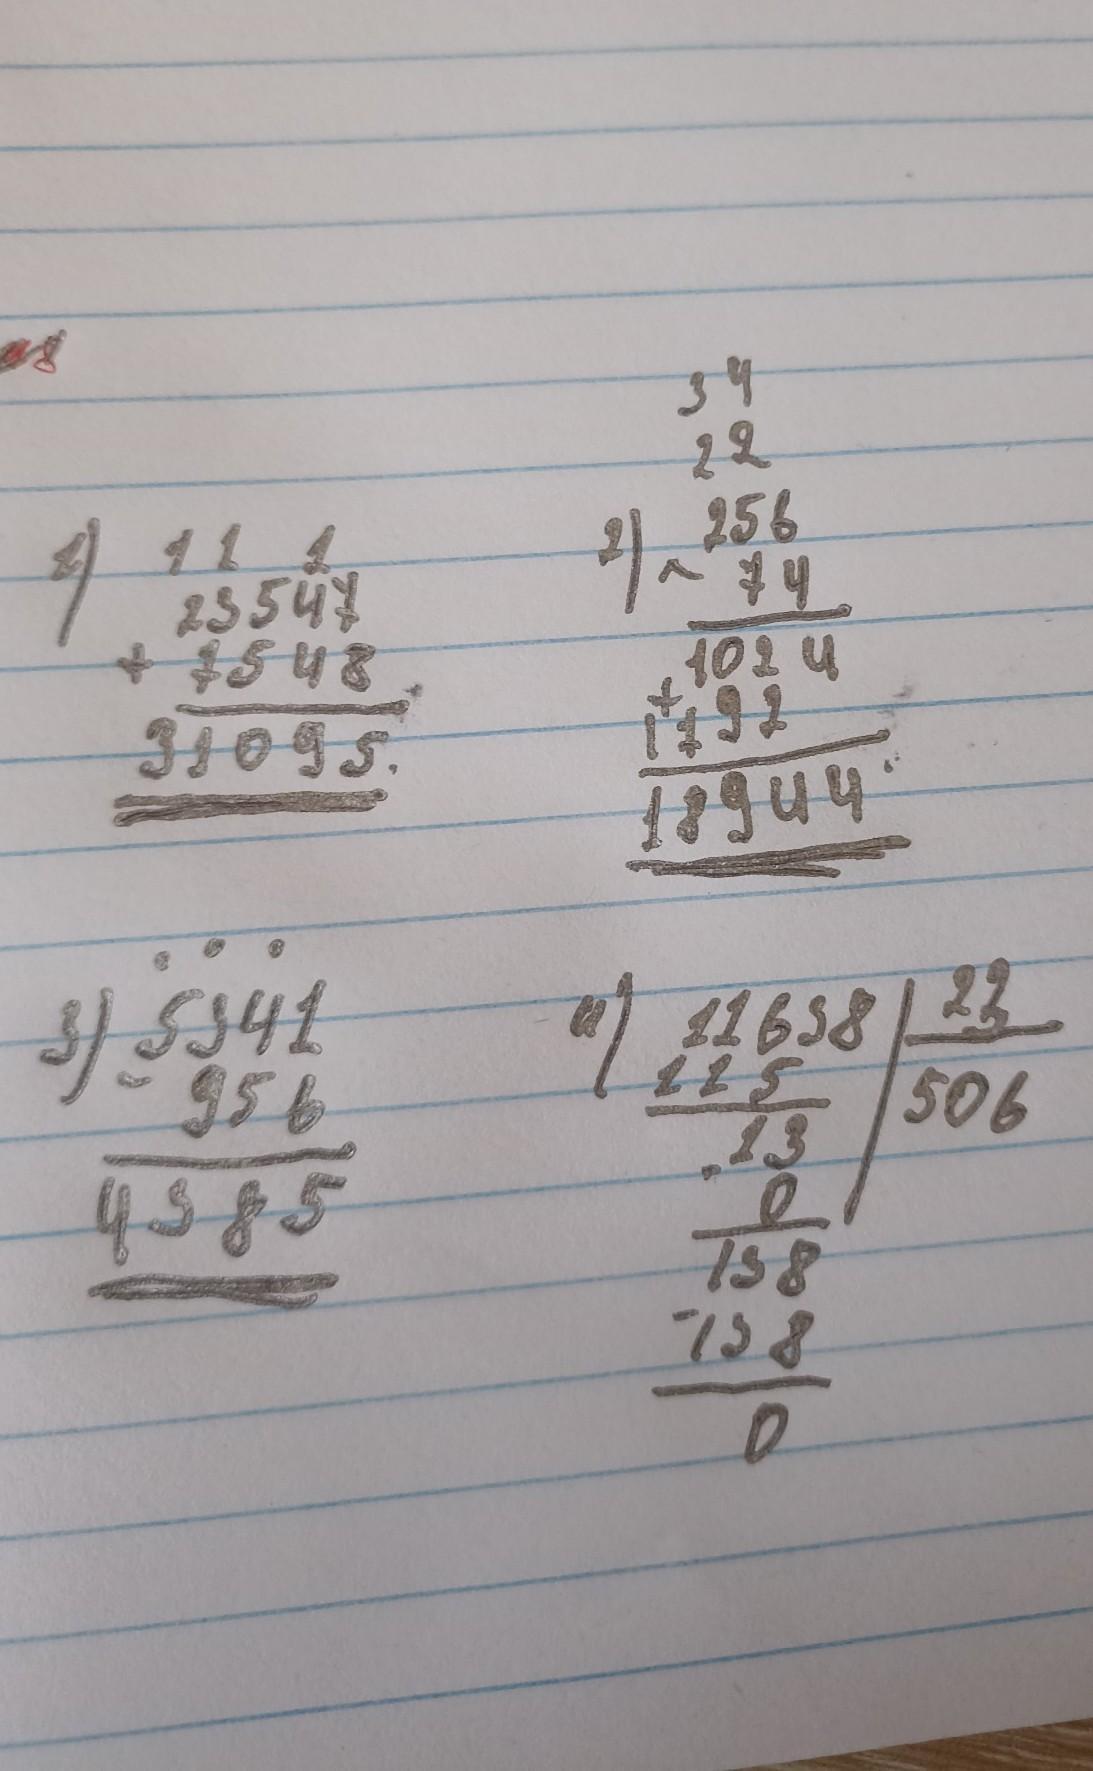 1) 1 1 1
23547
+ 7548
31095.
2) 3 4
2 2
256
× 74
1024
+
1792
18944
3) 5341
- 956
4385
4) 11638 | 23
115 506
13
0
138
- 138
0